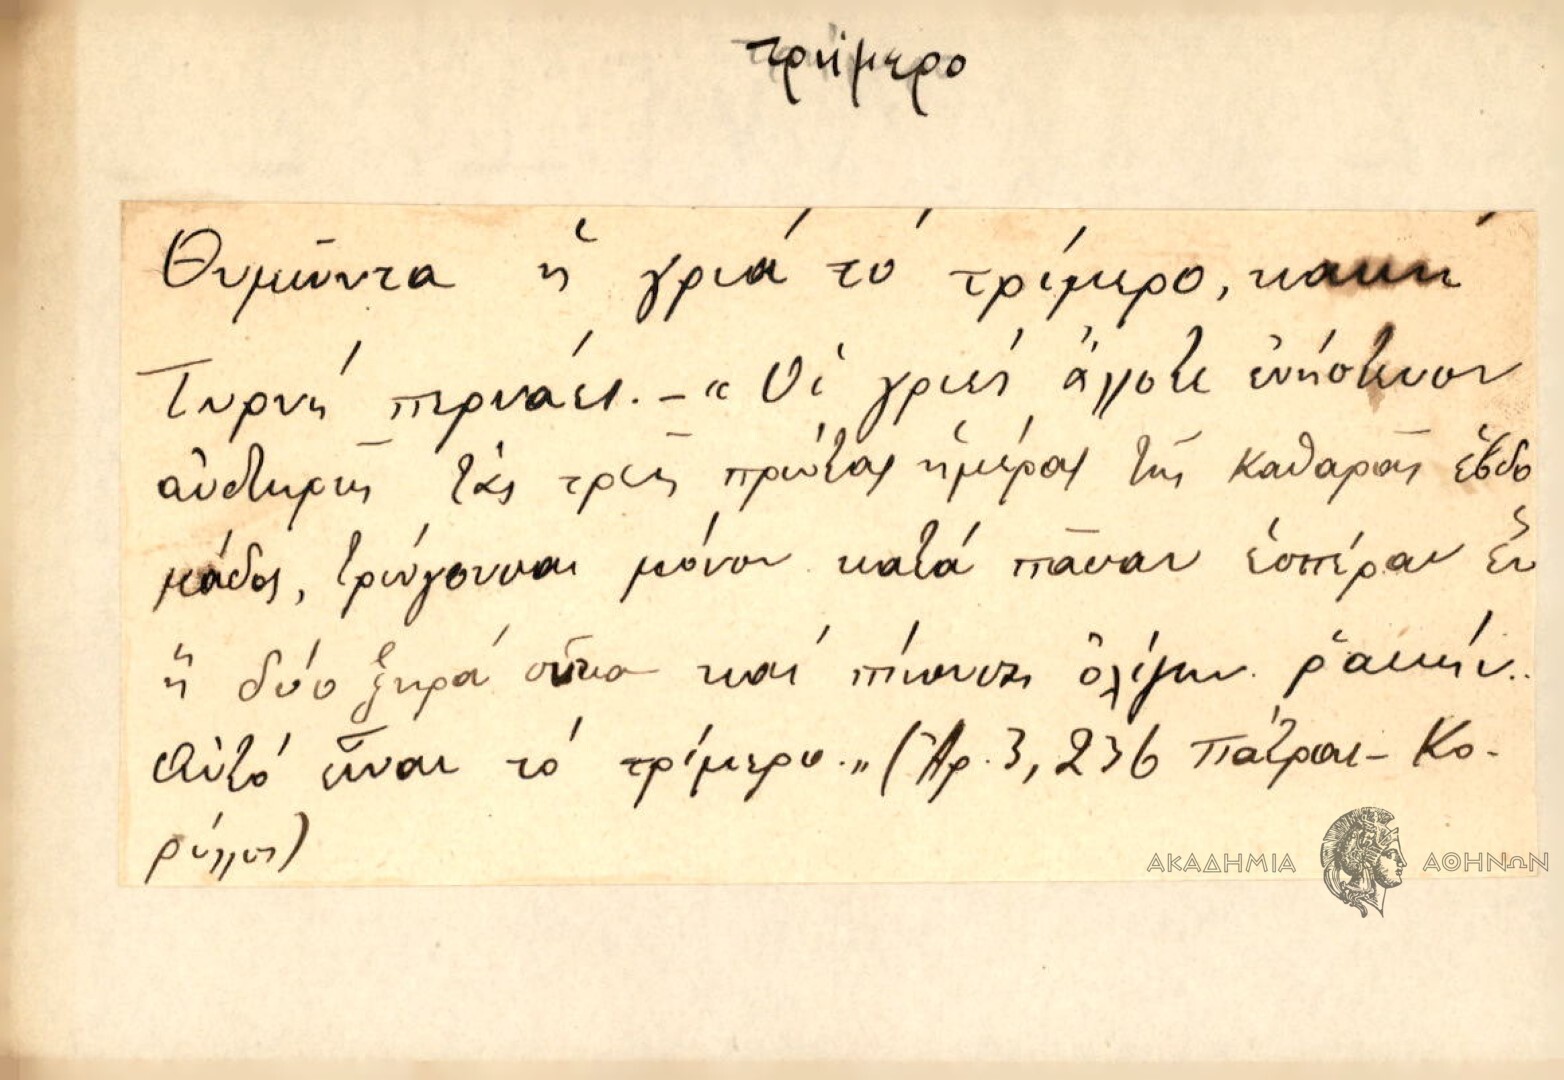 τριήμερο
Θυμῶντα ἡ γριά τό τρίμερο, κακή
Τυρνή περνάει. – « Οἱ γριές ἄλλοτε ἐνήστευον
αὐστηρῶς τάς τρεῖς πρώτας ἡμέρας τῆς Καθαρᾶς ἑβδο
μάδος, τρώγουσαι μόνον κατά πᾶσαν ἑσπέραν ἕν
ἤ δύο ξηρά σῦκα καί πίνουσαι ὀλίγην ῥακήν..
Αὐτό εἶναι τό τρίμερο.» (Ἀρ. 3, 236 Πάτραι – Κο-
ρύλλος)
ΑΚΑΔΗΜΙΑ ΑΘΗΝΩΝ